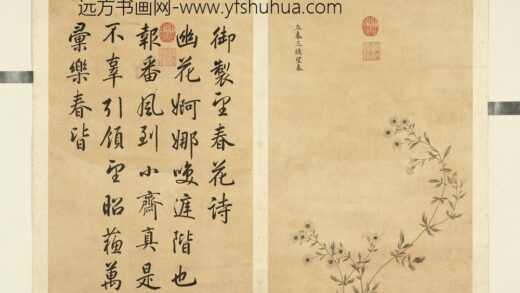 远方书画网-www.yfshuhua.com
立春三候望春
御製望春花詩
幽花婀娜暎庭階也
報番風到小齋真是
不辜引領望昭蘇萬
彙樂春皆